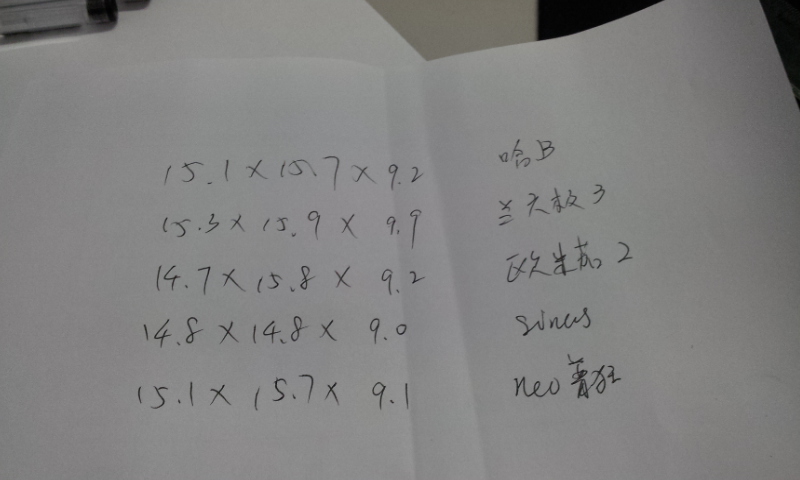 15.1 × 15.7 × 9.2 哈B
15.3 × 15.9 × 9.9 兰天极3
14.7 × 15.8 × 9.2 2
14.8 × 14.8 × 9.0 sinus
15.1 × 15.7 × 9.1 neo 狂